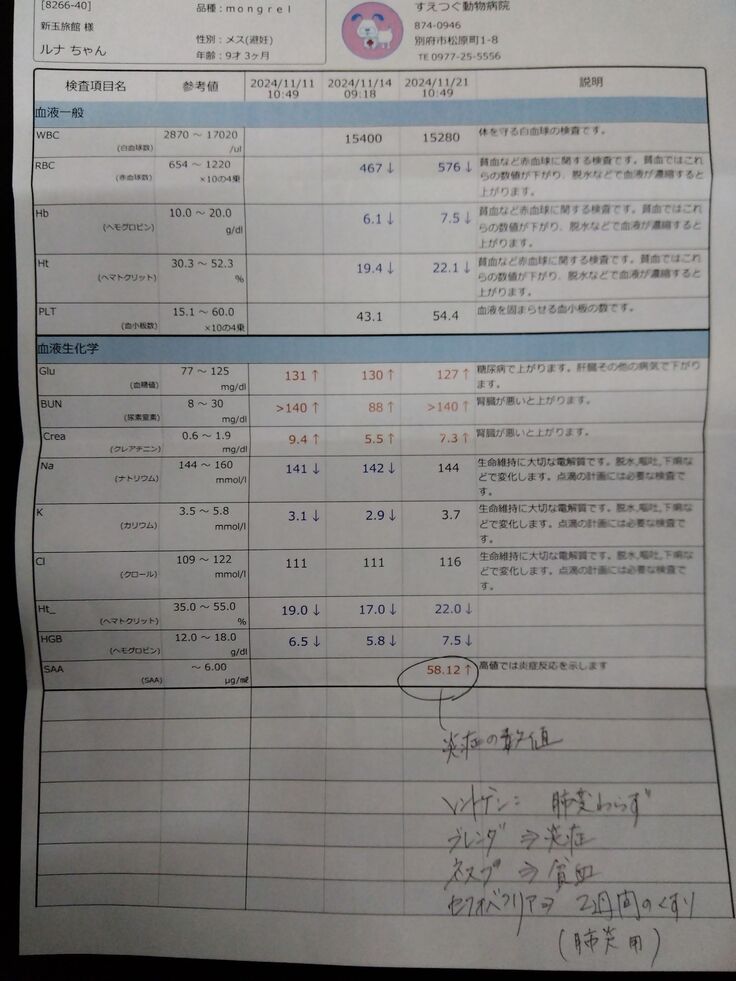 [8266-40]
品種：mongrel
すえつぐ動物病院
新玉旅館 様
874-0946
別府市松原町1-8
ルナ ちゃん
性別：メス(避妊)
年齢：9才 3ヶ月
TEL 0977-25-5556
検査項目名 参考値 2024/11/11 10:49 2024/11/14 09:18 2024/11/21 10:49 説明
血液一般
WBC (白血球数) 2870 ～ 17020 /ul 15400 15280 体を守る白血球の検査です。
RBC (赤血球数) 654 ～ 1220 ×10の4乗 467↓ 576↓ 貧血など赤血球に関する検査です。貧血ではこれ
らの数値が下がり、脱水などで血液が濃縮すると
上がります。
Hb (ヘモグロビン) 10.0 ～ 20.0 g/dl 6.1↓ 7.5↓ 貧血など赤血球に関する検査です。貧血ではこれ
らの数値が下がり、脱水などで血液が濃縮すると
上がります。
Ht (ヘマトクリット) 30.3 ～ 52.3 % 19.4↓ 22.1↓ 貧血など赤血球に関する検査です。貧血ではこれ
らの数値が下がり、脱水などで血液が濃縮すると
上がります。
PLT (血小板数) 15.1 ～ 60.0 ×10の4乗 43.1 54.4 血液を固まらせる血小板の数です。
血液生化学
Glu (血糖値) 77 ～ 125 mg/dl 131↑ 130↑ 127↑ 糖尿病で上がります。肝臓その他の病気で下がり
ます。
BUN (尿素窒素) 8 ～ 30 mg/dl >140↑ 88↑ >140↑ 腎臓が悪いと上がります。
Crea (クレアチニン) 0.6 ～ 1.9 mg/dl 9.4↑ 5.5↑ 7.3↑ 腎臓が悪いと上がります。
Na (ナトリウム) 144 ～ 160 mmol/l 141↓ 142↓ 144 生命維持に大切な電解質です。脱水,嘔吐,下痢な
どで変化します。点滴の計画には必要な検査で
す。
K (カリウム) 3.5 ～ 5.8 mmol/l 3.1↓ 2.9↓ 3.7 生命維持に大切な電解質です。脱水,嘔吐,下痢な
どで変化します。点滴の計画には必要な検査で
す。
Cl (クロール) 109 ～ 122 mmol/l 111 111 116 生命維持に大切な電解質です。脱水,嘔吐,下痢な
どで変化します。点滴の計画には必要な検査で
す。
Ht_ (ヘマトクリット) 35.0 ～ 55.0 % 19.0↓ 17.0↓ 22.0↓
HGB (ヘモグロビン) 12.0 ～ 18.0 g/dl 6.5↓ 5.8↓ 7.5↓
SAA (SAA) ～ 6.00 μg/mℓ 58.12↑ 高値では炎症反応を示します
炎症の数値
レントゲン： 肺変わらず
ブレンダ ⇒ 炎症
ネスプ ⇒ 貧血
セフォベクリア⇒ 2週間のくすり
(肺炎用)